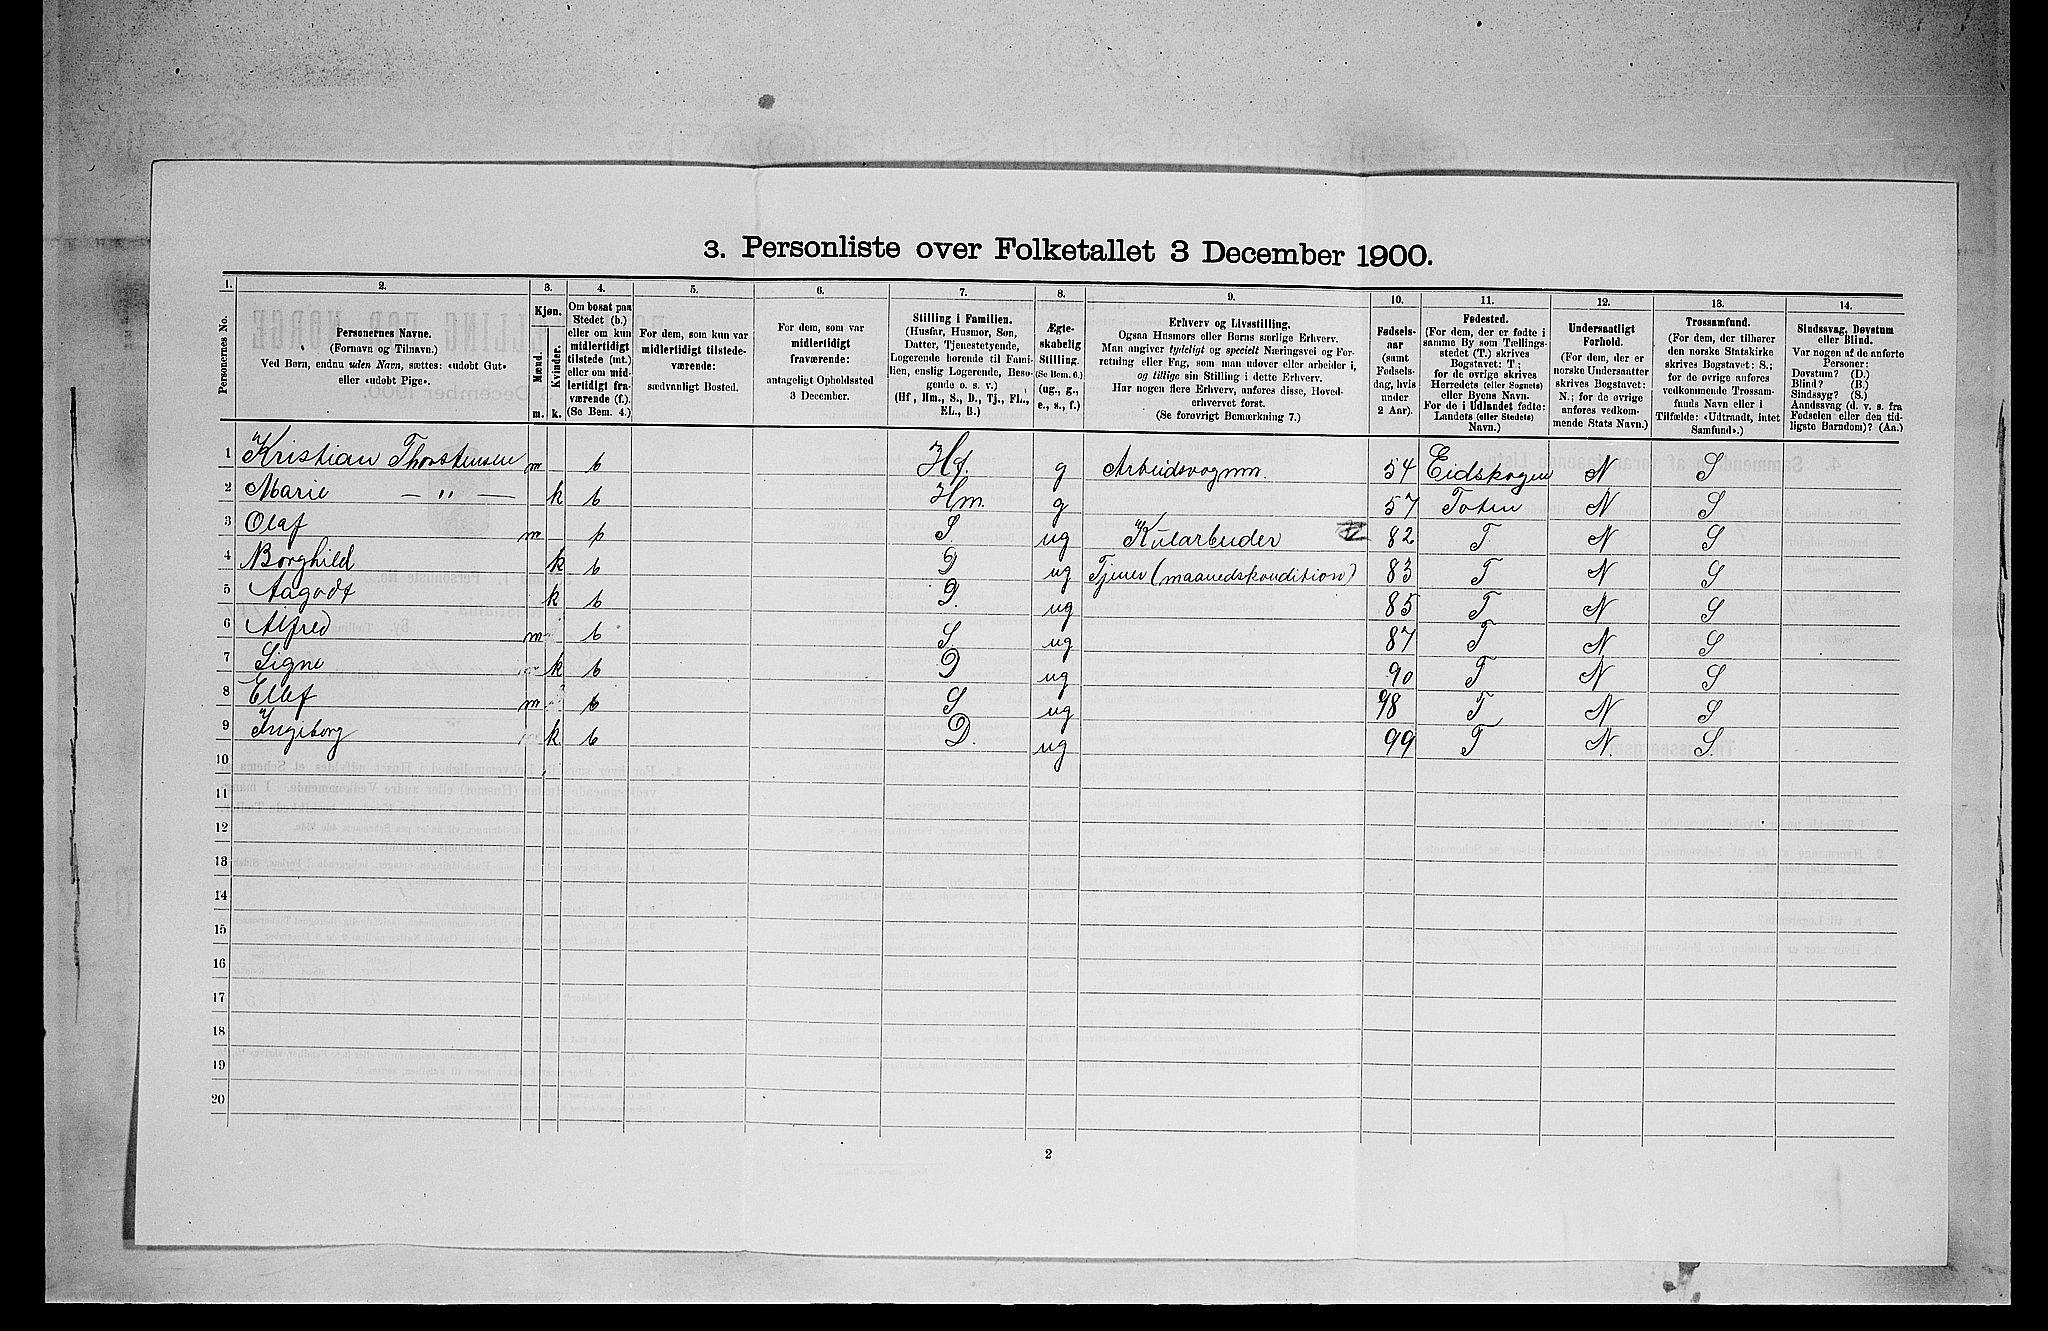 3. Personliste over Folketallet 3 December 1900.
1. 2. 3. 4. 5. 6. 7. 8. 9. 10. 11. 12. 13. 14.
Personernes No.
Personernes Navne.
(Fornavn og Tilnavn.)
Ved Børn, endnu uden Navn, sættes: «udøbt Gut»
eller «udøbt Pige».
Kjøn.
Mænd.
Kvinder.
m. k.
Om bosat paa
Stedet (b.)
eller om kun
midlertidigt
tilstede (mt.)
eller om mid-
lertidigt fra-
værende (f.)
(Se Bem. 4.)
For dem, som kun var
midlertidigt tilstede-
værende:
sædvanligt Bosted.
For dem, som var
midlertidigt
fraværende:
antageligt Opholdssted
3 December.
Stilling i Familien.
(Husfar, Husmor, Søn,
Datter, Tjenestetyende,
Logerende hørende til Fami-
lien, enslig Logerende, Besø-
gende o. s. v.)
(Hf., Hm., S., D., Tj., FL.,
EL., B.)
Ægte-
skabelig
Stilling.
(Se Bem. 6.)
(ug., g.,
e., s., f.)
Erhverv og Livsstilling.
Ogsaa Husmors eller Børns særlige Erhverv.
Man angiver tydeligt og specielt Næringsvei og For-
retning eller Fag, som man udøver eller arbeider i,
og tillige sin Stilling i dette Erhverv.
Har nogen flere Erhverv, anføres disse, Hoved-
erhvervet først.
(Se forøvrigt Bemærkning 7.)
Fødsels-
aar
(samt
Fødsels-
dag, hvis
under
2 Aar).
Fødested.
(For dem, der er fødte i
samme By som Tællings-
stedet (T.) skrives
Bogstavet: T;
for de øvrige skrives
Herredets (eller Sognets)
eller Byens Navn.
For de i Udlandet fødte:
Landets (eller Stedets)
Navn.)
Undersaatligt
Forhold.
(For dem, der er
norske Undersaatter
skrives Bogstavet:
N.; for de øvrige
anføres vedkom-
mende Stats Navn.)
Trossamfund.
(For dem, der tilhører
den norske Statskirke
skrives Bogstavet: S.;
for de øvrige anføres
vedkommende Trossam-
funds Navn eller i
Tilfælde: «Udtraadt, intet
Samfund».)
Sindssvag, Døvstum
eller Blind.
Var nogen af de anførte
Personer:
Døvstum? (D.)
Blind? (B.)
Sindssyg? (S.)
Aandssvag (d. v. s. fra
Fødselen eller den tid-
ligste Barndom)? (Aa.)
1 Kristian Thorstensen m b Hf. g Arbeidsvognm. 54 Eidskogen N S
2 Marie — " — k b Hm. g 57 Toten N S
3 Olaf m b S. ug Kularbeider 82 T N S
4 Borghild k b D ug Tjener (maanedskondition) 83 T N S
5 Aagodt k b D. ug 85 T N S
6 Alfred m b S ug 87 T N S
7 Signe k b D ug 90 T N S
8 Ellef m b S ug 98 T N S
9 Ingeborg k b D. ug 99 T N. S.
10
11
12
13
14
15
16
17
18
19
20
2